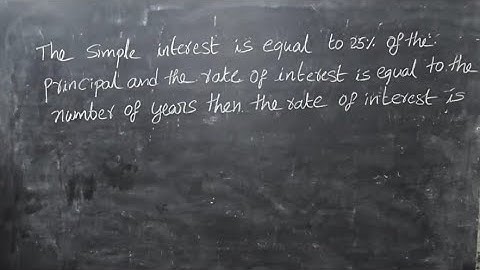 The Simple interest is equal to 25% of the
principal and the rate of interest is equal to the
number of years then the rate of interest is